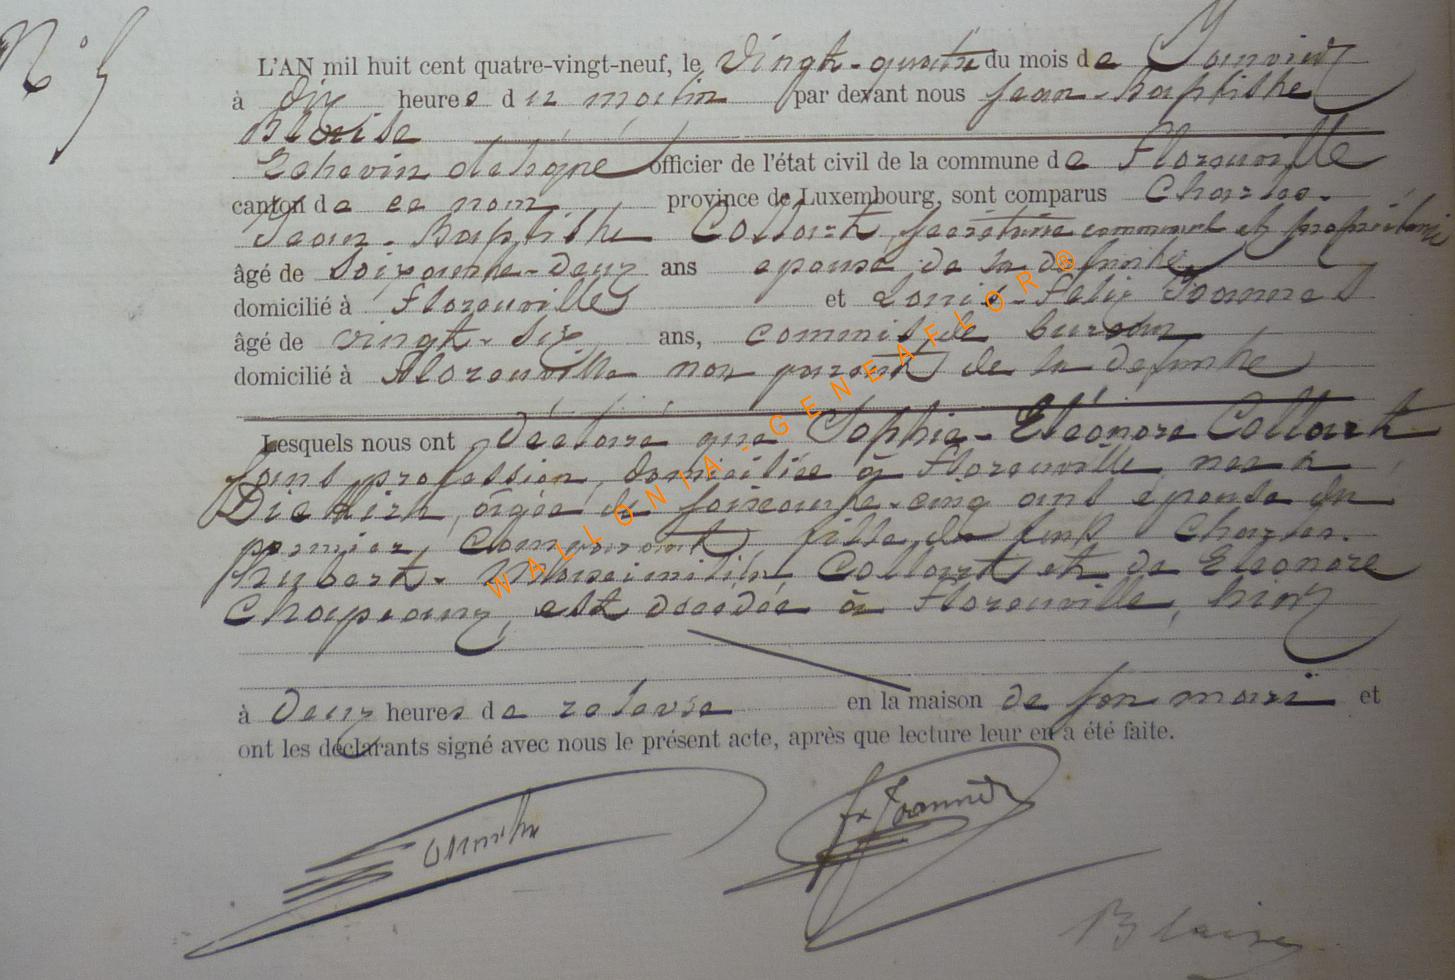 N° 5
L'AN mil huit cent quatre-vingt-neuf, le Vingt-quatre du mois de Janvier
à dix heures du matin par devant nous Jean-Baptiste
Blaise
Echevin délégué officier de l'état civil de la commune de Florenville
canton de ce nom province de Luxembourg, sont comparus Charles-
Jean-Baptiste Collart, secrétaire communal et propriétaire
âgé de Soixante-deux ans époux de la défunte
domicilié à Florenville et Louis-Félix
âgé de vingt-six ans, commis de bureau
domicilié à Florenville non parent de la défunte
Lesquels nous ont déclaré que Sophie-Eléonore Collart
sans profession, domiciliée à Florenville, née à
âgée de soixante-cinq ans épouse du
premier comparant, fille de feus Charles-
hubert-Maximilien Collart et de Eléonore
Chapeaux, est décédée à Florenville, hier
à Deux heures de relevée en la maison de son mari et
ont les déclarants signé avec nous le présent acte, après que lecture leur en a été faite.
Blaise
WALLONIA-GENEAFLOR®